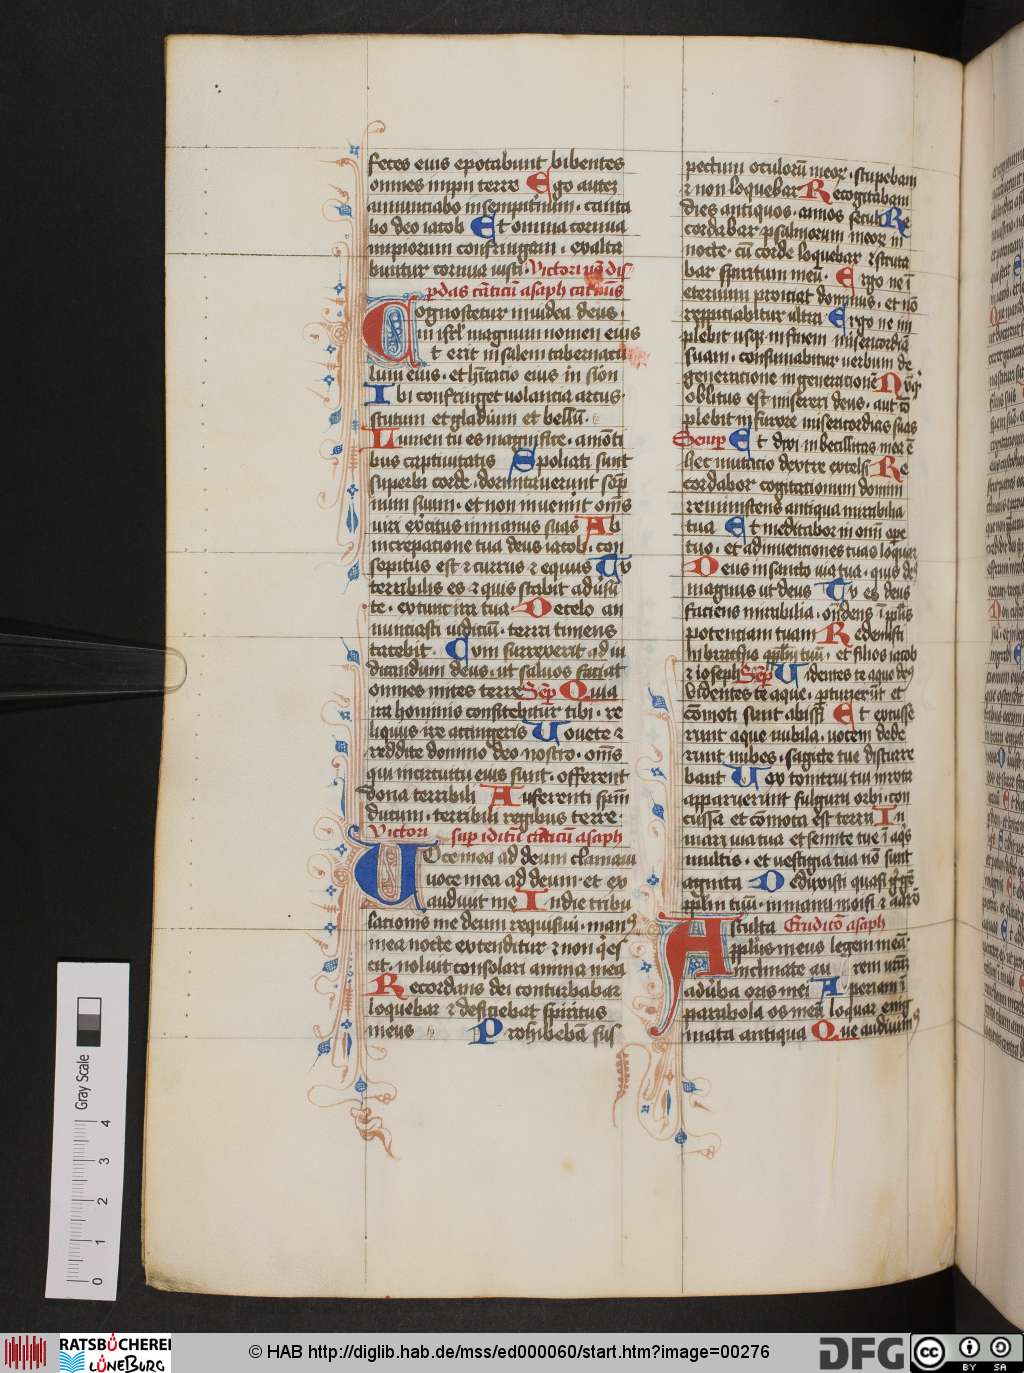 feces eius epotabunt bibentes
omnes impii terre Ego autez
annunciabo in sempiternum · canta
bo deo iacob Et omnia cornua
impiorum confringam · exalta
buntur cornua iusti · Victori
asaph
Cognoscetur in iudea deus ·
in isrl' magnum nomen eius
Et erit in salem tabernacu
lum eius · et hitacio eius in sion
Ibi confringet volancia arcus ·
scutum et gladium et bellū ·
Lumen tu es magnifice · a mōti
bus captiuitatis Spoliati sunt
superbi corde · dormitauerunt sōp
num suum · et non inuenit om̄s
viri exercitus in manus suas Ab
increpatione tua deus iacob · con
sopitus est et currus et equus Tv
terribilis es et quis stabit aduersū
te · extunc ira tua De celo an
nunciasti iudiciū · terra timens
tacebit · Cvm surrexerit ad iu
dicandum deus · ut saluos faciat
omnes mites terre Semp Quia
ira hominis confitebitur tibi · re
liquiis ire accingeris Vouete et
reddite domino deo nostro · om̄s
qui in circuitu eius sunt · offerent
dona terribili Auferenti spm̄
ducum · terribili regibus terre ·
Victori sup iditū canticū asaph
Voce mea ad deum clamaui
voce mea ad deum · et ex
audiuit me In die tribu
lationis me deum requisiui · man9
mea nocte extenditur et non q̄es
cit · noluit consolari anima mea
Recordans dei conturbabar
loquebar et deficiebat spiritus
meus Prohibebā sus
pectum oculorū meoꝝ · stupebam
et non loquebar Recogitabam
dies antiquos · annos seculi Re
cordabar psalmorum meoꝝ in
nocte · cū corde loquebar et scruta
bar spiritum meū · Ergo ne ī
eternum proiciat dominus · et nō
repropiciabitur ultra Ergo ne in
plebit usqꝫ in finem misericordiā
suam · consumabitur verbum de
generatione in generationē Nūqͥd
oblitus est misereri deus · aut cō
plebit in furore misericordias suas
Semp Et dixi inbecillitas mea ē
hec mutacio dextre excelsi Re
cordabor cogitacionum domini
reminiscens antiqua mirabilia
tua Et meditabor in omni ope
tuo · et adinuenciones tuas loquar
Deus in sancto via tua · quis de9
magnus ut deus Tv es deus
faciens mirabilia · ondens ī pplīs
potenciam tuam Redemisti
in brachio pplm tuū · et filios iacob
et ioseph Semp Videntes te aque de9
videntes te aque · parturierūt et
cōmoti sunt abissi Et excusse
runt aque nubila · vocem dede
runt nubes · sagitte tue discurre
bant Vox tonitrui tui in rota
apparuerunt fulgura orbi · con
cussa et cōmota est terra In
mari via tua et semite tue ī aqs
multis · et vestigia tua nō sunt
agnita Deduxisti quasi gregē
pplm tuū · in manu moisi et aarō
Asculta Erudicō asaph
pplus meus legem meā ·
inclinate aurem vram
ad verba oris mei Aperiam ī
parabola os meū loquar enig
mata antiqua Que audiuim9
RATSBÜCHEREI
LÜNEBURG
© HAB http://diglib.hab.de/mss/ed000060/start.htm?image=00276
DFG
cc BY SA
Gray Scale
0 1 2 3 4